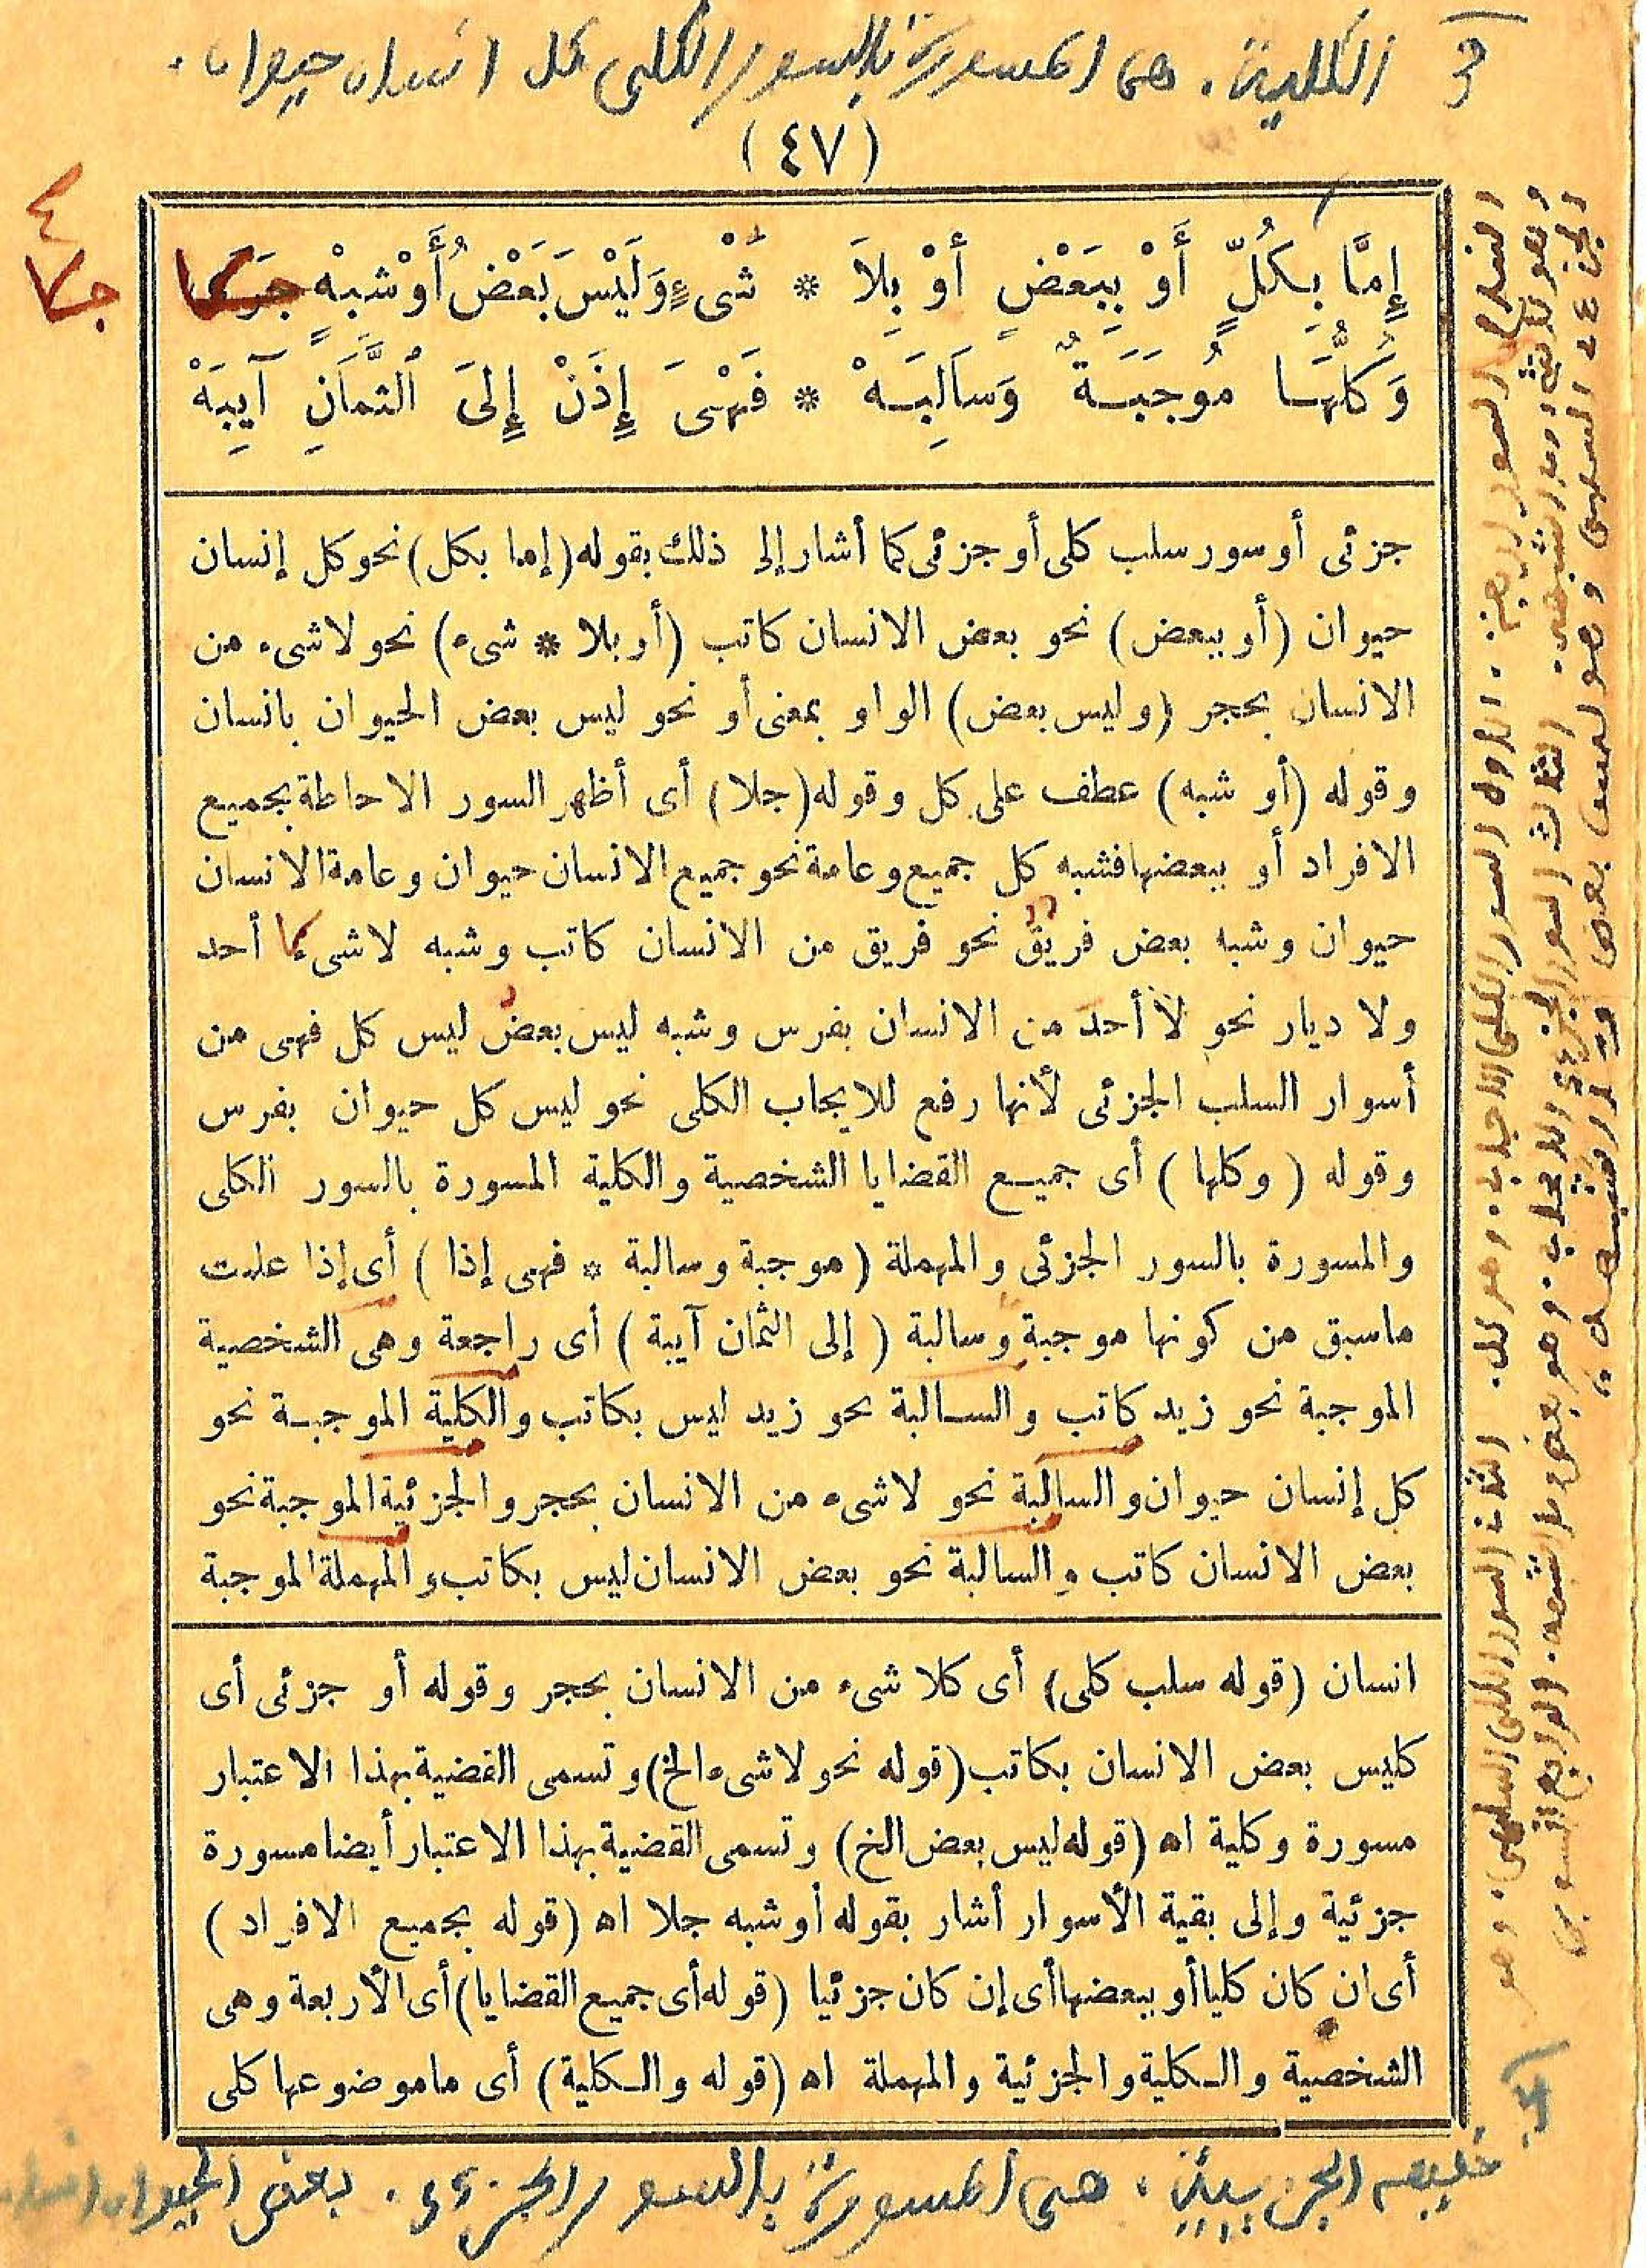 ٣ الكلية . هى المسورة بالسور الكلى كل انسان حيوان .
(٤٧)
إِمَّا بِكُلٍّ أَوْ بِبَعْضٍ أَوْ بِلاَ * شَىْءٍ وَلَيْسَ بَعْضُ أَوْ شِبْهٍ جَلَا
وَكُلُّهَا مُوجَبَةٌ وَسَالِبَهْ * فَهْىَ إِذَنْ إِلَى الثَّمَانِ آيِبَهْ
جلا
جزئى أوسور سلب كلى أو جزئى كما أشار إلى ذلك بقوله (إما بكل) نحو كل إنسان
حيوان (أو ببعض) نحو بعض الانسان كاتب (أو بلا * شىء) نحو لاشىء من
الانسان بحجر (وليس بعض) الواو بمعنى أو نحو ليس بعض الحيوان بانسان
وقوله (أو شبه) عطف على كل وقوله (جلا) أى أظهر السور الاحاطة بجميع
الافراد أو ببعضها فشبه كل جميع وعامة نحو جميع الانسان حيوان وعامة الانسان
حيوان وشبه بعض فريق نحو فريق من الانسان كاتب وشبه لاشىء لا أحد
ولا ديار نحو لا أحد من الانسان بفرس وشبه ليس بعض ليس كل فهى من
أسوار السلب الجزئى لأنها رفع للايجاب الكلى نحو ليس كل حيوان بفرس
وقوله (وكلها) أى جميع القضايا الشخصية والكلية المسورة بالسور الكلى
والمسورة بالسور الجزئى والمهملة (موجبة وسالبة * فهى إذا) أى إذا علمت
ماسبق من كونها موجبة وسالبة (إلى الثمان آيبة) أى راجعة وهى الشخصية
الموجبة نحو زيد كاتب والسالبة نحو زيد ليس بكاتب والكلية الموجبة نحو
كل إنسان حيوان والسالبة نحو لاشىء من الانسان بحجر والجزئية الموجبة نحو
بعض الانسان كاتب والسالبة نحو بعض الانسان ليس بكاتب والمهملة الموجبة
انسان (قوله سلب كلى) أى كلا شىء من الانسان بحجر وقوله أو جزئى أى
كليس بعض الانسان بكاتب (قوله نحو لاشىء الخ) وتسمى القضية بهذا الاعتبار
مسورة وكلية اه (قوله ليس بعض الخ) وتسمى القضية بهذا الاعتبار أيضا مسورة
جزئية وإلى بقية الأسوار أشار بقوله أوشبه جلا اه (قوله بجميع الافراد)
أى ان كان كليا أو ببعضها أى إن كان جزئيا (قوله أى جميع القضايا) أى الأربعة وهى
الشخصية والكلية والجزئية والمهملة اه (قوله والكلية) أى ماموضوعها كلى
الجزئية . هى المسورة بالسور الجزئى . بعض الحيوان انسان
السور أربعة . الأول السور الكلى الايجاب . وهو كل . الثانى السور الكلى السلبى . وهو
الثالث السور الجزئى الايجاب . وهو بعض
وهو ليس بعض